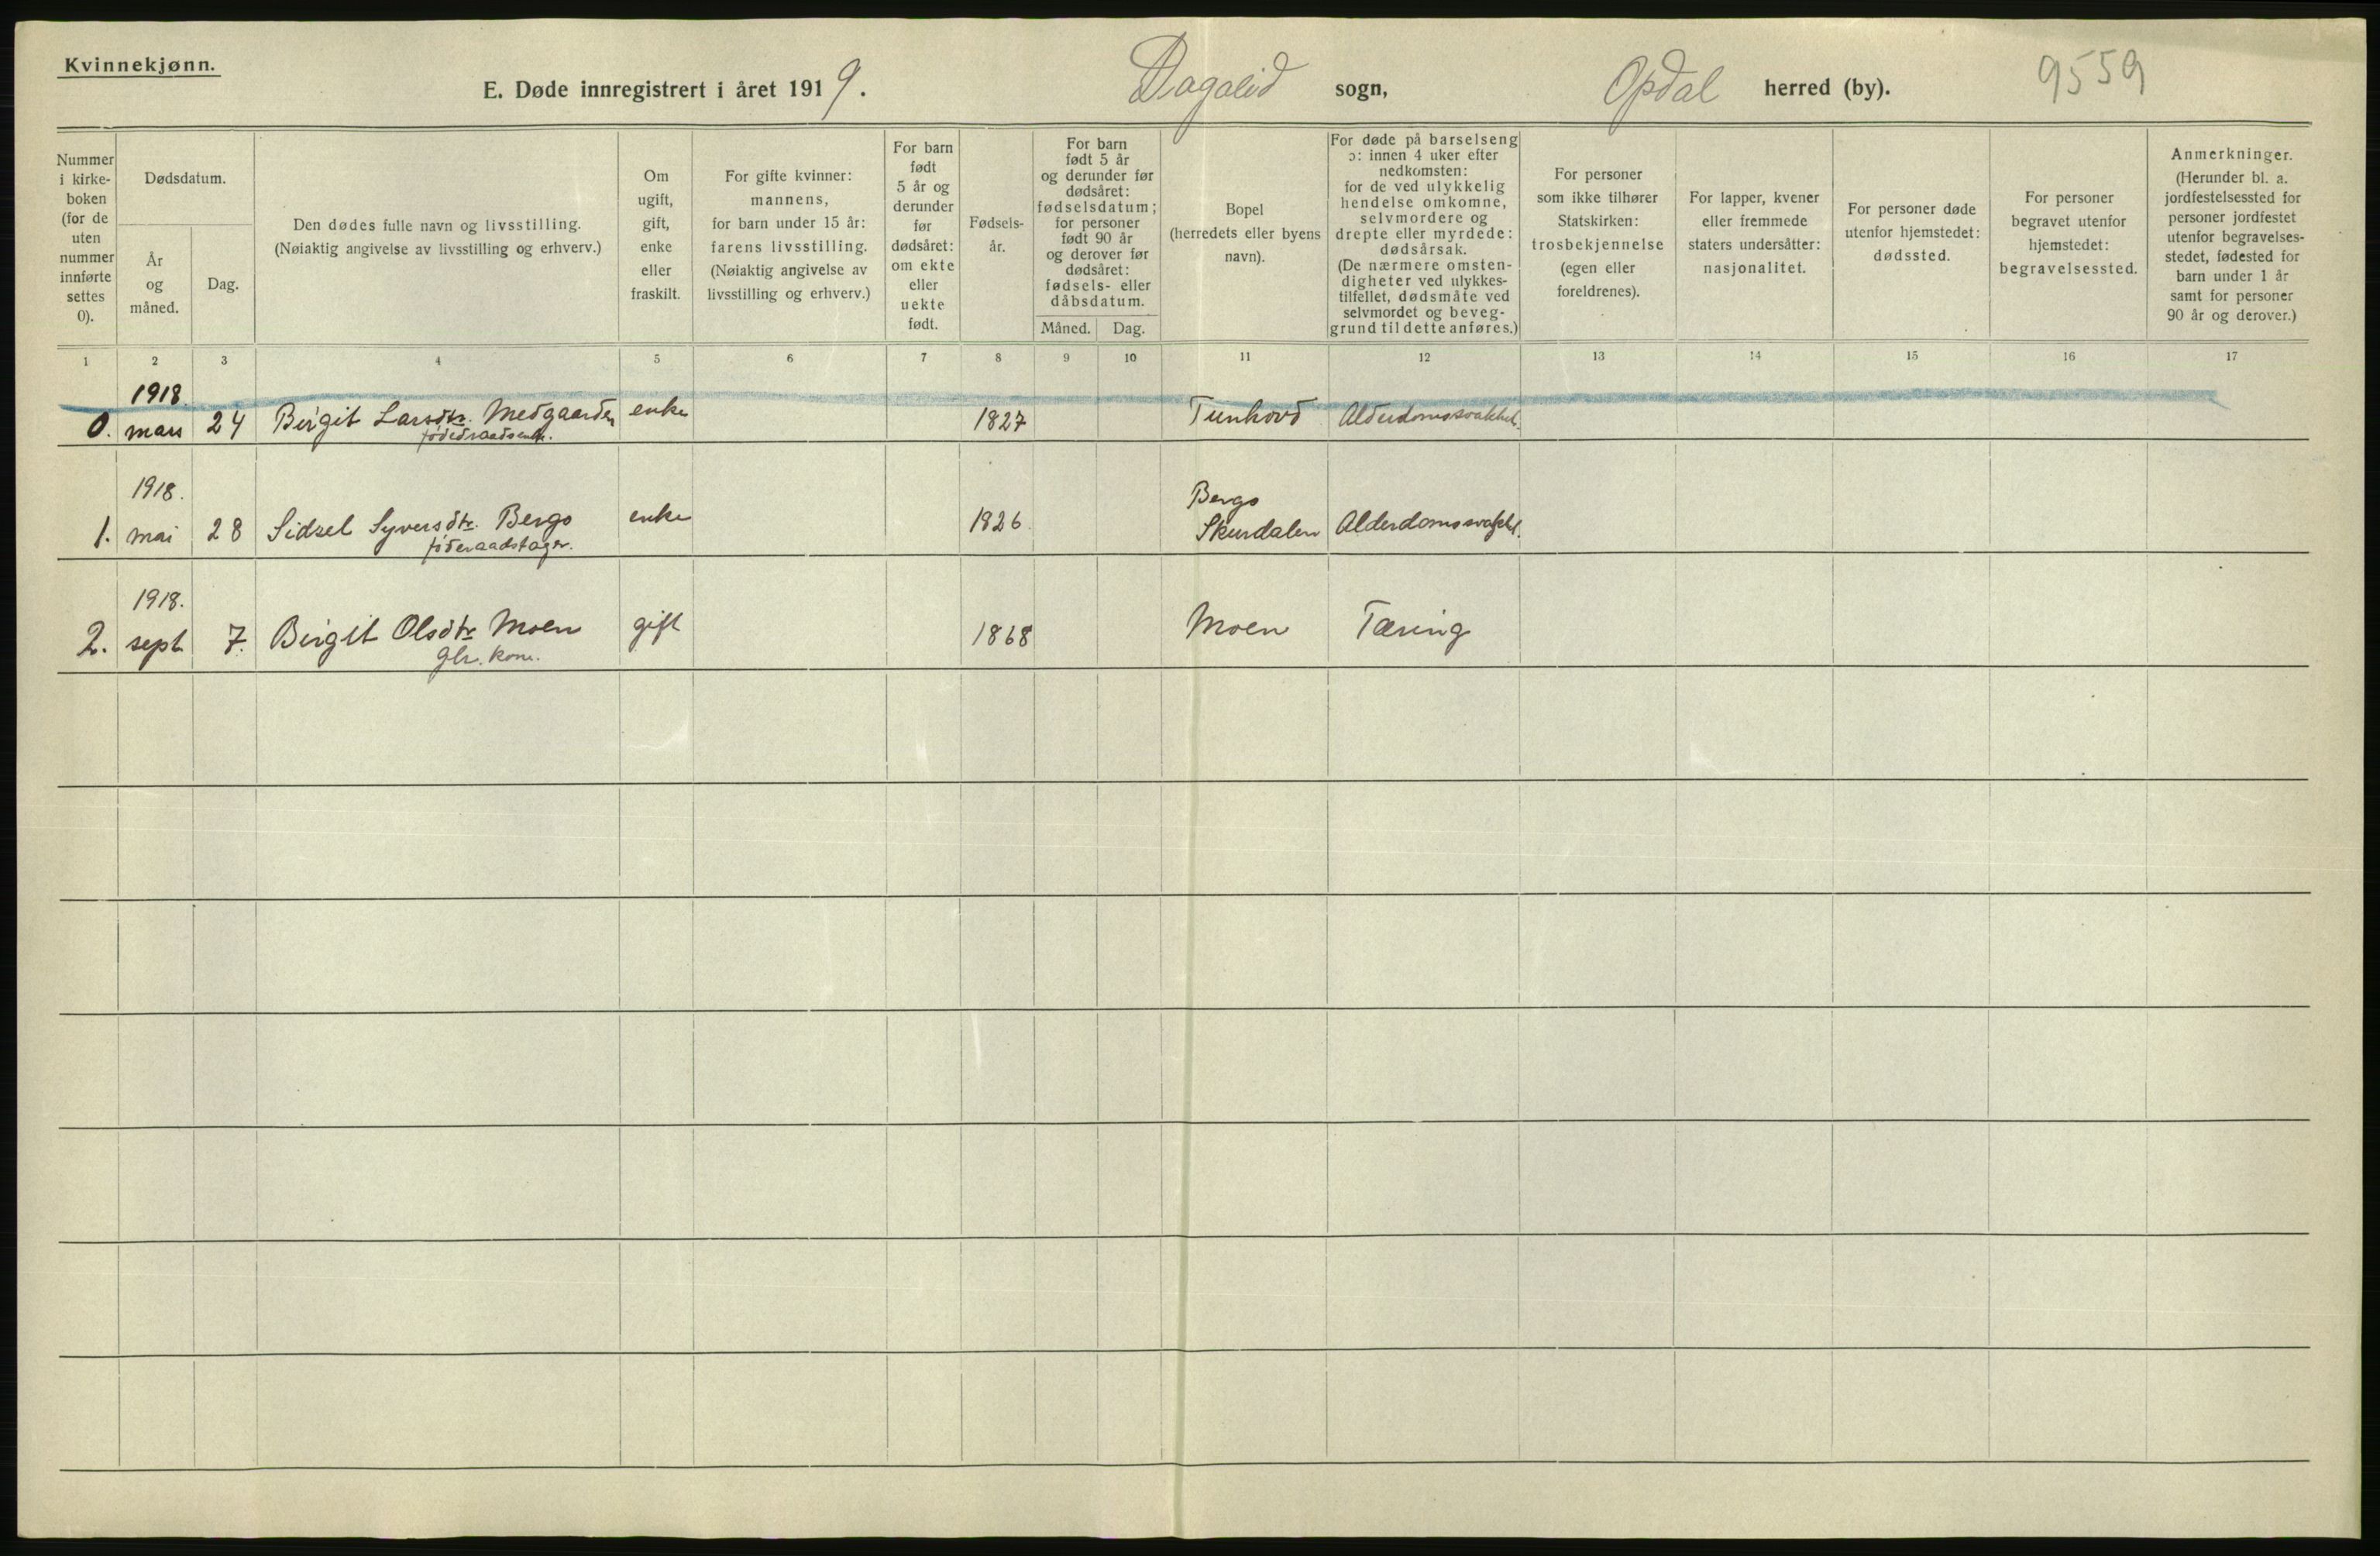 Kvinnekjønn.
E. Døde innregistrert i året 1919. Dagalid sogn, Opdal herred (by). 9559
Nummer i kirke- boken (for de uten nummer innførte settes 0).
Dødsdatum.
År og måned.
Dag.
Den dødes fulle navn og livsstilling.
(Nøiaktig angivelse av livsstilling og erhverv.)
Om ugift, gift, enke eller fraskilt.
For gifte kvinner: mannens, for barn under 15 år: farens livsstilling. (Nøiaktig angivelse av livsstilling og erhverv.)
For barn født 5 år og derunder før dødsåret: om ekte eller uekte født.
Fødsels- år.
For barn født 5 år og derunder før dødsåret: fødselsdatum; for personer født 90 år og derover før dødsåret: fødsels- eller dåbsdatum.
Måned. Dag.
Bopel (herredets eller byens navn).
For døde på barselseng ɔ: innen 4 uker efter nedkomsten: for de ved ulykkelig hendelse omkomne, selvmordere og drepte eller myrdede: dødsårsak. (De nærmere omsten- digheter ved ulykkes- tilfellet, dødsmåte ved selvmordet og beveg- grund til dette anføres.)
For personer som ikke tilhører Statskirken: trosbekjennelse (egen eller foreldrenes).
For lapper, kvener eller fremmede staters undersåtter: nasjonalitet.
For personer døde utenfor hjemstedet: dødssted.
For personer begravet utenfor hjemstedet: begravelsessted.
Anmerkninger. (Herunder bl. a. jordfestelsessted for personer jordfestet utenfor begravelses- stedet, fødested for barn under 1 år samt for personer 90 år og derover.)
1 2 3 4 5 6 7 8 9 10 11 12 13 14 15 16 17
1918.
0. mars 24 Birgit Larsdtr. Medgaarden enke 1827 Tunhovd Alderdomssvakhet.
1918. Bergo
1. mai 28 Sidsel Syversdtr. Bergo enke 1826 Skurdalen Alderdomssvakhet.
føderaadstager.
1918.
2. sept. 7. Birgit Olsdtr Moen gift 1868 Moen Tæring
gbr. kone.